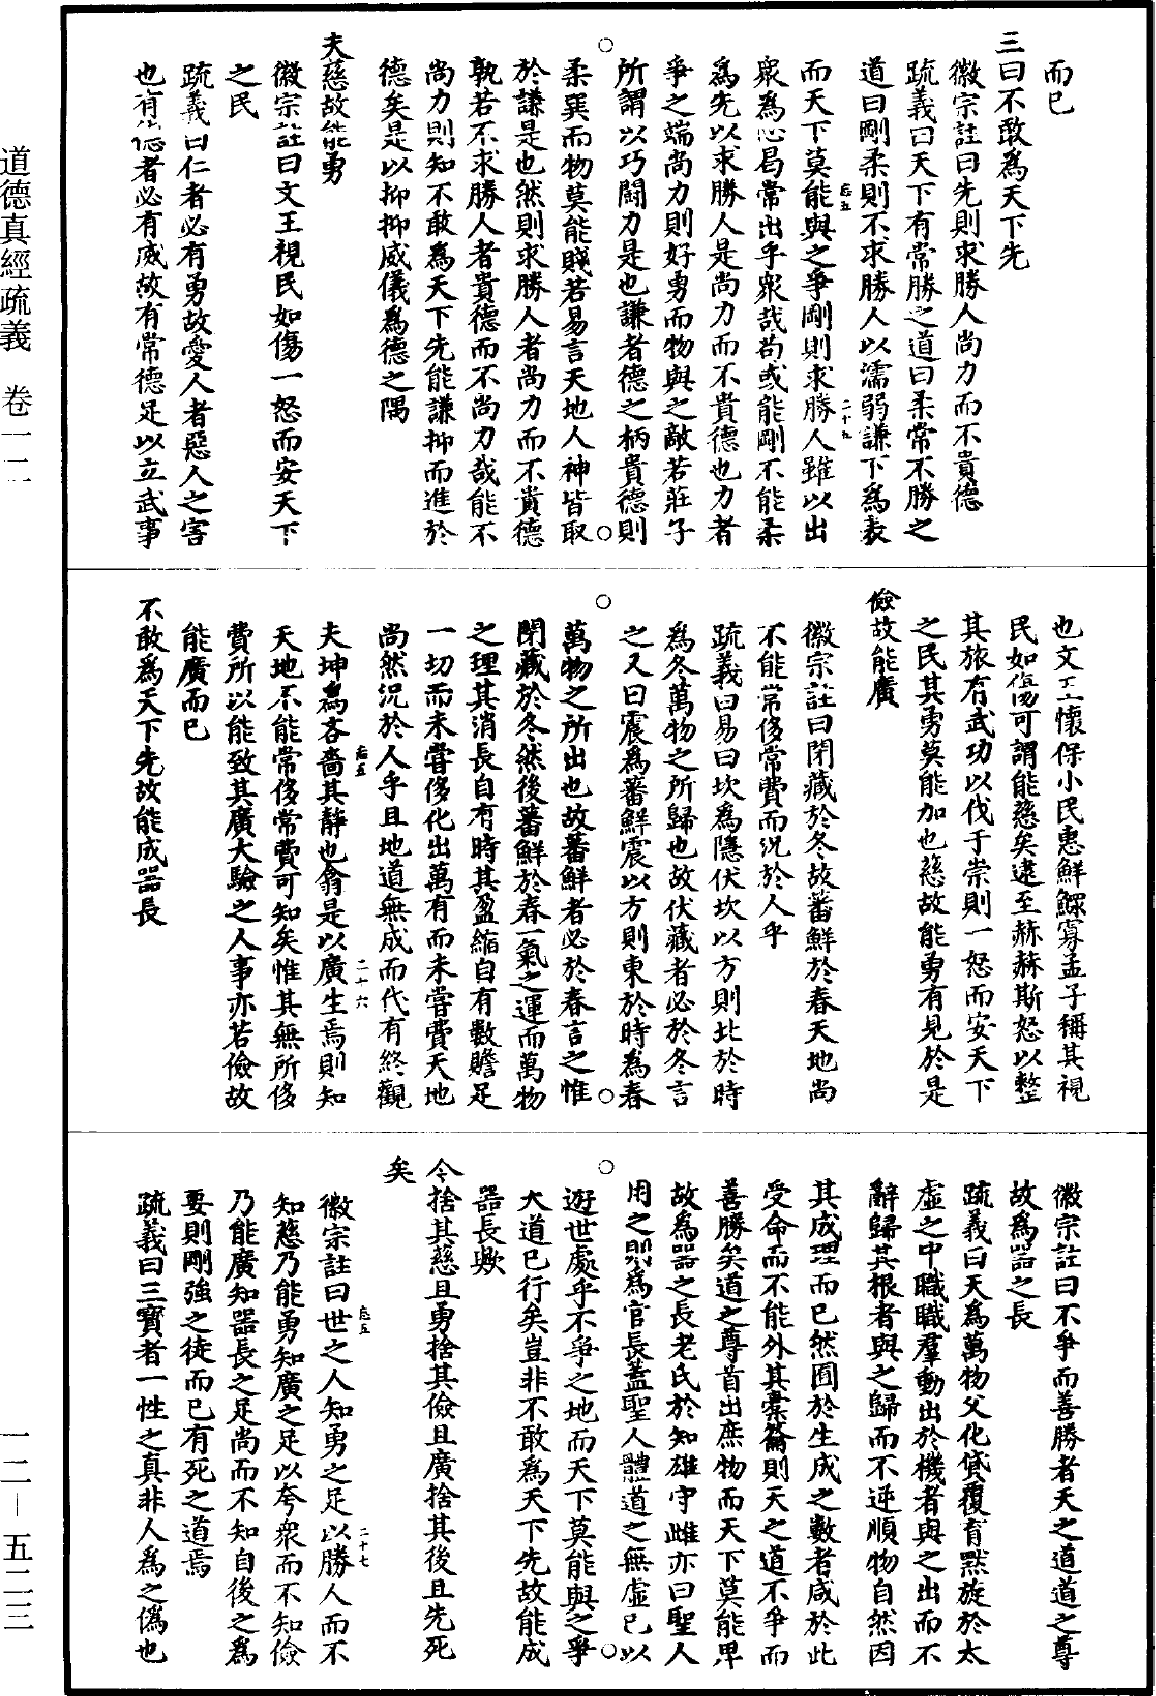 而已
三曰不敢為天下先
徽宗註曰先則求勝人尚力而不貴德
疏義曰天下有常勝之道曰柔常不勝之
道曰剛柔則不求勝人以濡弱謙下為表
而天下莫能與之爭剛則求勝人雖以出
眾為心曷常出乎眾哉苟或能剛不能柔
為先以求勝人是尚力而不貴德也力者
爭之端尚力則好勇而物與之敵若莊子
所謂以巧鬬力是也謙者德之柄貴德則
柔巽而物莫能賤若易言天地人神皆取
於謙是也然則求勝人者尚力而不貴德
孰若不求勝人者貴德而不尚力哉能不
尚力則知不敢為天下先能謙抑而進於
德矣是以抑抑威儀為德之隅
夫慈故能勇
徽宗註曰文王視民如傷一怒而安天下
之民
疏義曰仁者必有勇故愛人者惡人之害
也有德者必有威故有常德足以立武事
也文王懷保小民惠鮮鰥寡孟子稱其視
民如傷可謂能慈矣逮至赫赫斯怒以整
其旅有武功以伐于崇則一怒而安天下
之民其勇莫能加也慈故能勇有見於是
儉故能廣
徽宗註曰閉藏於冬故蕃鮮於春天地尚
不能常侈常費而況於人乎
疏義曰易曰坎為隱伏坎以方則北於時
為冬萬物之所歸也故伏藏者必於冬言
之又曰震為蕃鮮震以方則東於時為春
萬物之所出也故蕃鮮者必於春言之惟
閉藏於冬然後蕃鮮於春一氣之運而萬物
之理其消長自有時其盈縮自有數贍足
一切而未嘗侈化出萬有而未嘗費天地
尚然況於人乎且地道無成而代有終觀
夫坤為吝嗇其靜也翕是以廣生焉則知
天地不能常侈常費可知矣惟其無所侈
費所以能致其廣大驗之人事亦若儉故
能廣而已
不敢為天下先故能成器長
徽宗註曰不爭而善勝者天之道道之尊
故為器之長
疏義曰天為萬物父化貸覆育默旋於太
虛之中職職羣動出於機者與之出而不
辭歸其根者與之歸而不逆順物自然因
其成理而已然囿於生成之數者咸於此
受命而不能外其橐籥則天之道不爭而
善勝矣道之尊首出庶物而天下莫能卑
故為器之長老氏於知雄守雌亦曰聖人
用之則為官長蓋聖人體道之無虛已以
遊世處乎不爭之地而天下莫能與之爭
大道已行矣豈非不敢為天下先故能成
器長歟
今捨其慈且勇捨其儉且廣捨其後且先死
矣
徽宗註曰世之人知勇之足以勝人而不
知慈乃能勇知廣之足以夸衆而不知儉
乃能廣知器長之足尚而不知自後之為
要則剛強之徒而已有死之道焉
疏義曰三寶者一性之真非人為之偽也
道德真經疏義 卷一二
一二－五二三